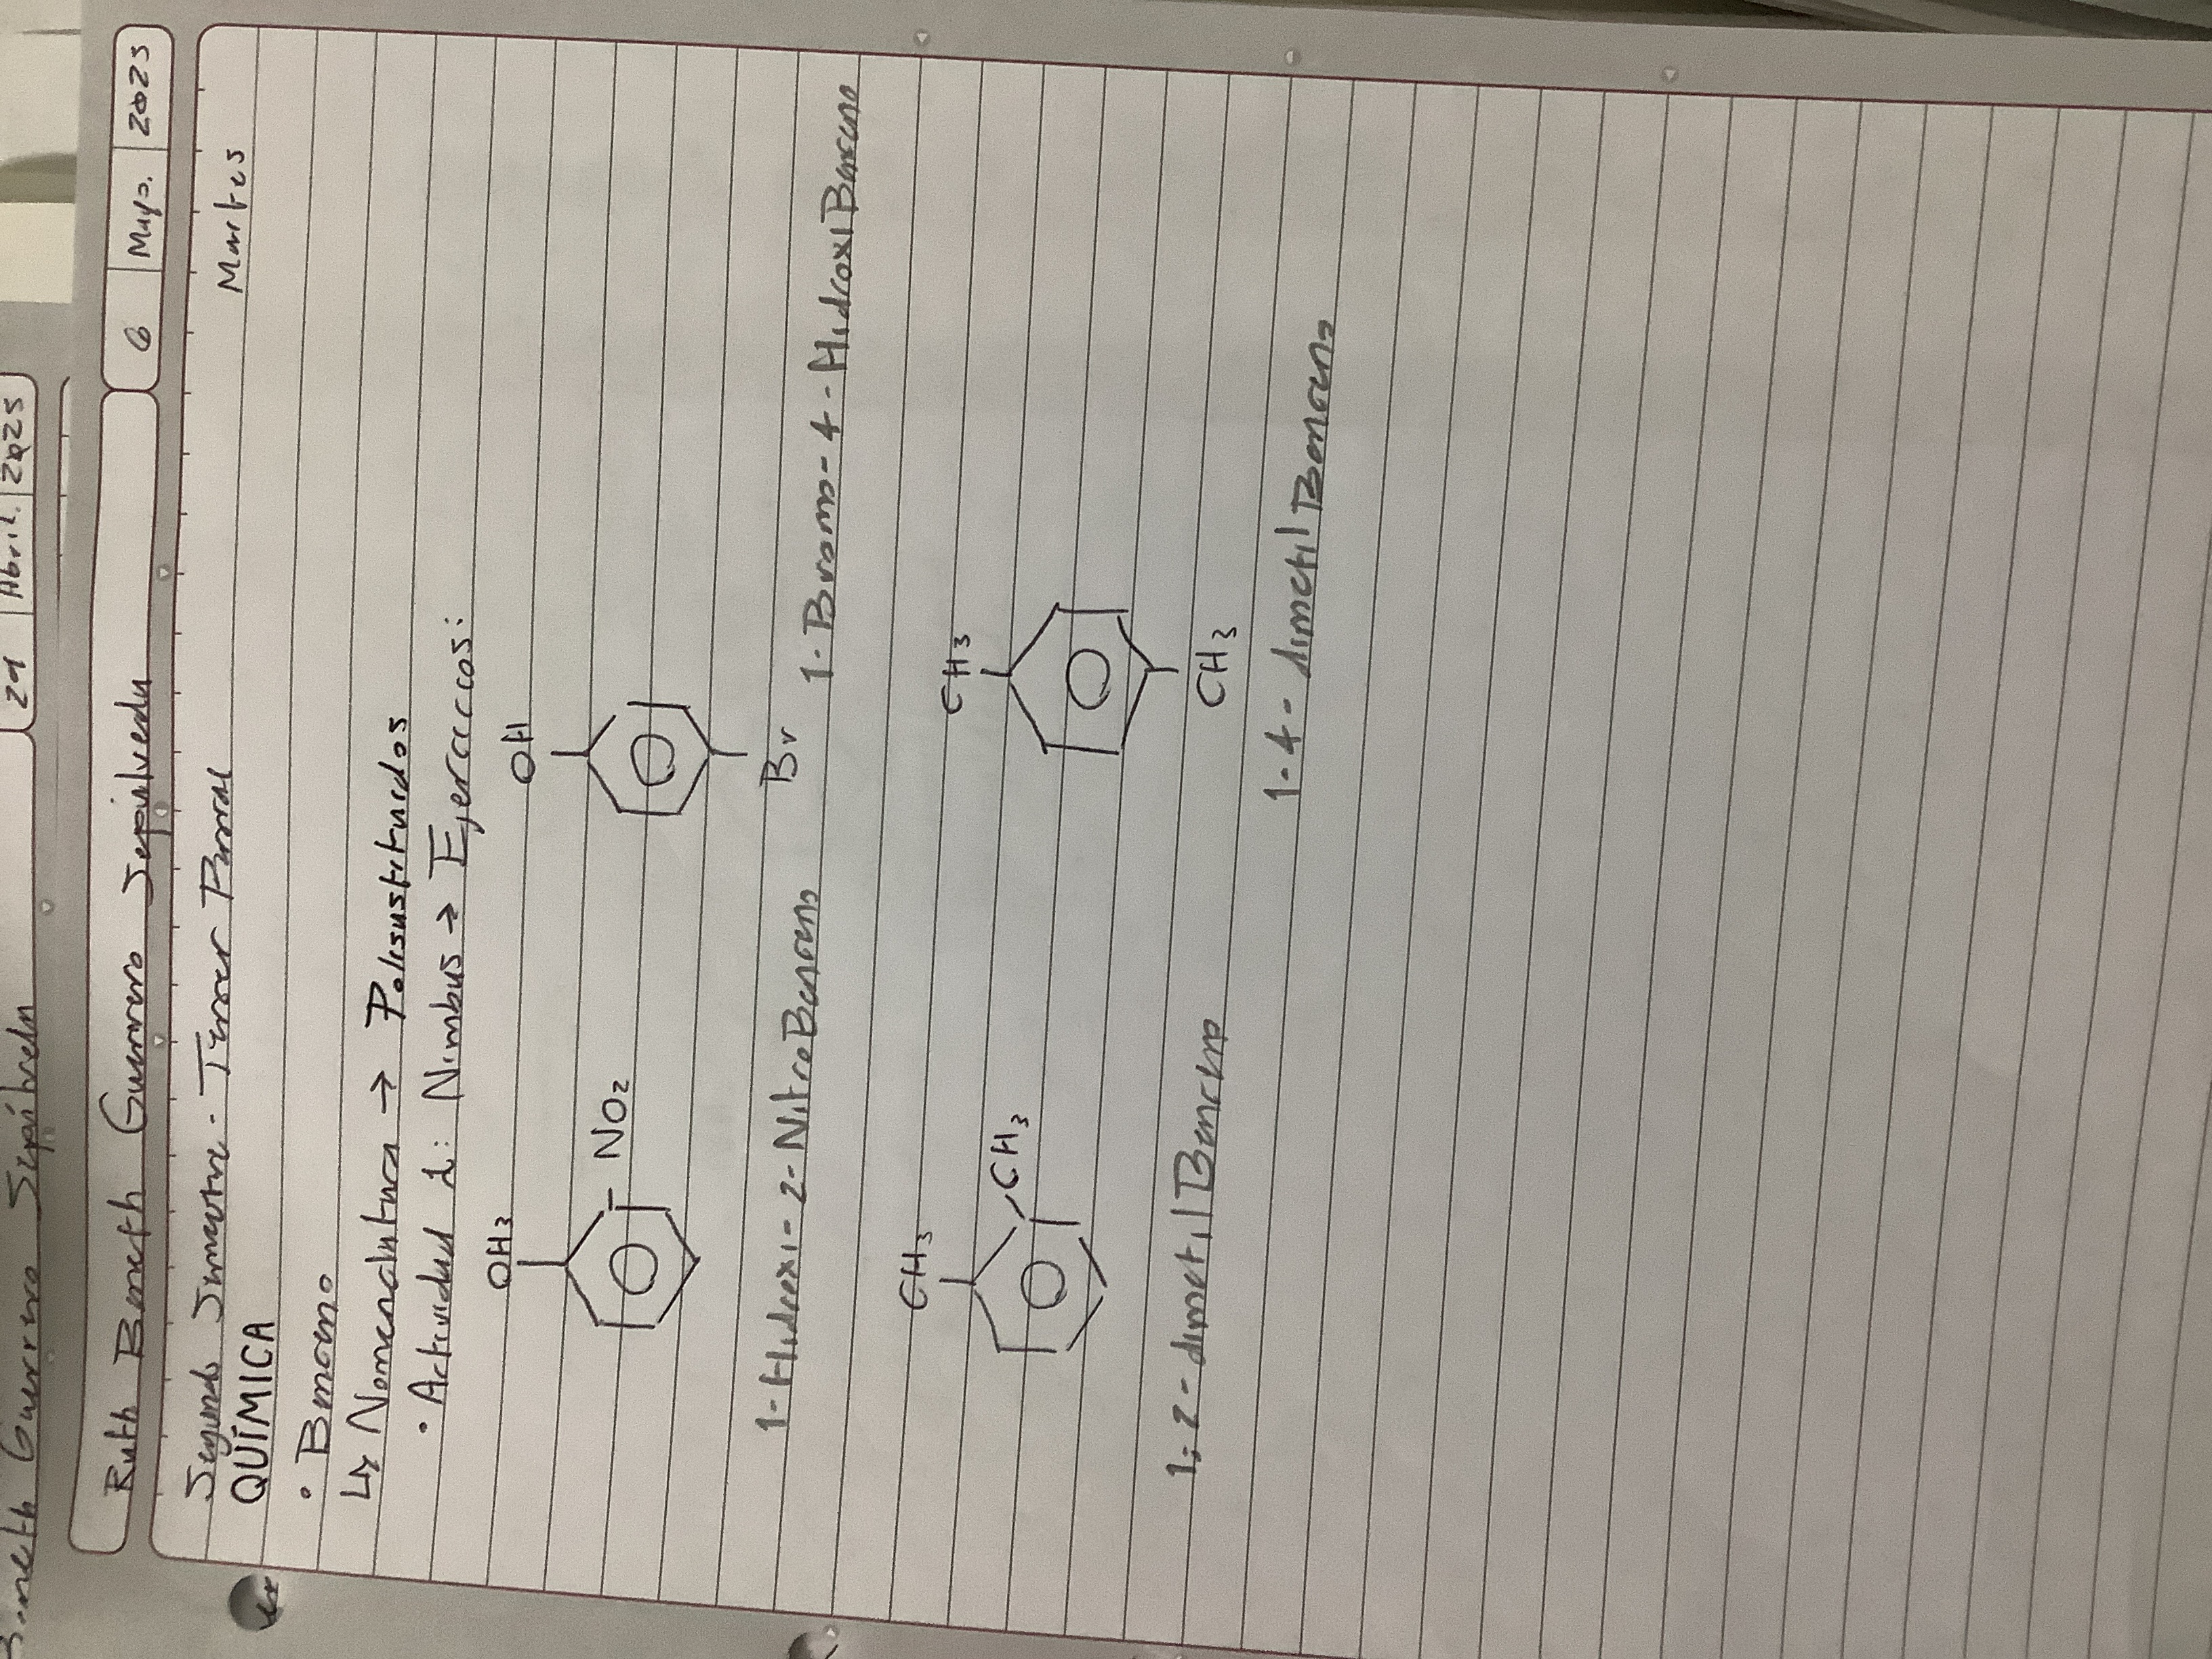 21 Abril. 2025
Ruth Beneth Guerrero Sepúlveda 6 Mayo. 2025
Segundo Semestre - Tercer Parcial Martes
QUÍMICA
• Benceno
↳ Nomenclatura → Polisustituidos
• Actividad 1: Nimbus → Ejercicios:
OH3 OH
NO2
Br
1-Hidroxi-2-NitroBenceno 1-Bromo-4-HidroxiBenceno
CH3 CH3
CH3
CH3
1-2-dimetilBenceno 1-4-dimetilBenceno